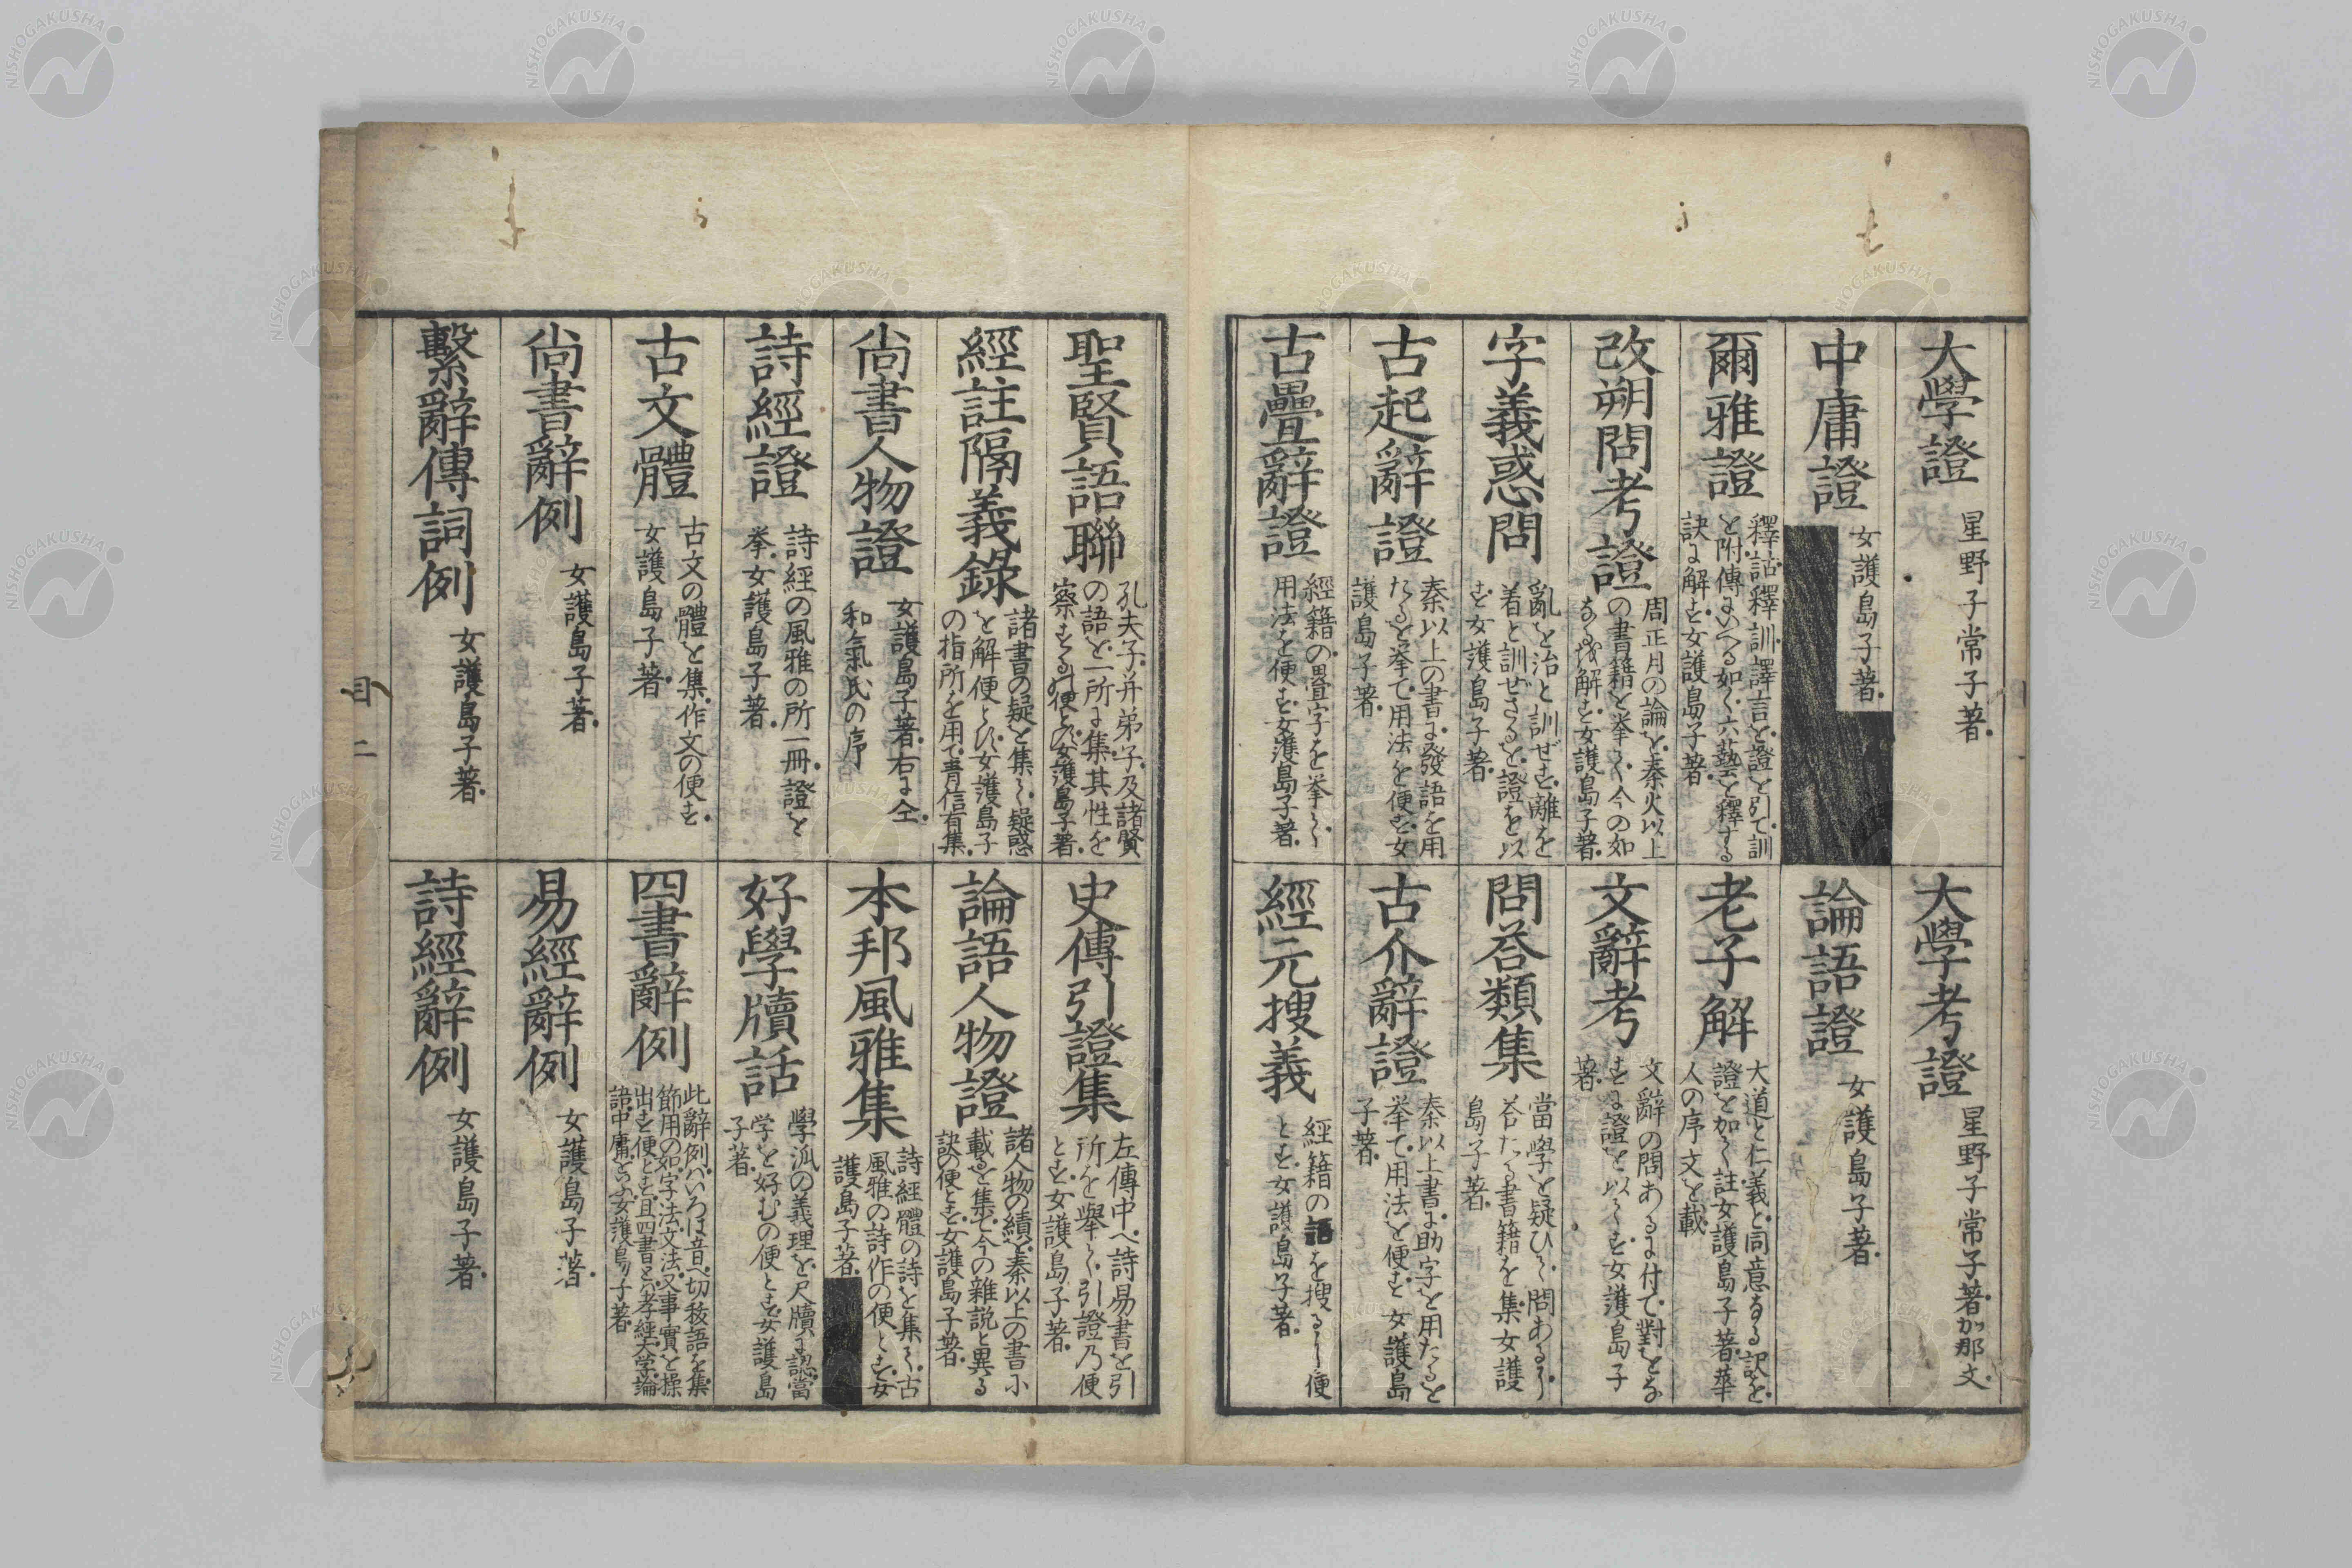 大學證
星野子常子著
中庸證
女護島子著
爾雅證
釋詁釋訓譯言を證を引て訓
を附傳にいへる如く六藝を釋する
訣に解す女護島子著
改朔問考證
周正月の論を秦火以上
の書籍を挙く今の如
なるを解す女護島子著
字義惑問
亂を治と訓ぜず離を
着と訓ぜざるを證を以
す女護島子著
古起辭證
秦以上の書に發語を用
たるを挙て用法を便す女
護島子著
古疊辭證
經籍の畳字を挙く
用法を便す女護島子著
大學考證
星野子常子著加那文
論語證
女護島子著
老子解
大道と仁義と同意なる訳を
證を加く註女護島子著華
人の序文を載
文辭考
文辭の問あるに付て對をな
すに證を以くす女護島子
著
問荅類集
當學を疑ひく問あるう
荅たる書籍を集女護
島子著
古介辭證
秦以上書に助字を用たるを
挙て用法を便す女護島
子著
經元搜義
經籍の語を搜るし便
とす女護島子著
聖賢語聯
孔夫子并弟子及諸賢
の語を一所に集其性を
察するの便とす女護島子著
經註隔義錄
諸書の疑を集く疑惑
を解便とす女護島子
の指所を用て青信有集
尚書人物證
女護島子著右に仝
和氣氏の序
詩經證
詩經の風雅の所一冊證を
挙女護島子著
古文體
古文の體を集作文の便す
女護島子著
尚書辭例
女護島子著
繫辭傳詞例
女護島子著
史傳引證集
左傳中へ詩易書を引
所を舉く引證乃便
とす女護島子著
論語人物證
諸人物の績を秦以上の書に
載るを集て今の雜説と異る
訣の便とす女護島子著
本邦風雅集
詩經體の詩を集く古
風雅の詩作の便とす女
護島子著
好學牘話
學派の義理を尺牘に認當
学を好むの便とす女護島
子著
四書辭例
此辭例ハいろは音へ切板語を集
節用の如字法文法又事實を操
出す便とす且四書と八孝經大学論
語中庸をいふ女護島子著
易經辭例
女護島子著
詩經辭例
女護島子著
目
二